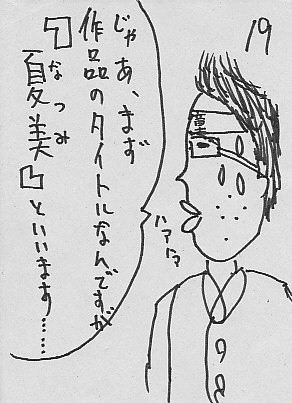 19
じゃあ、まず
作品のタイトルなんですが
『夏美』といいます……
なつみ
童貞
ハァハァ